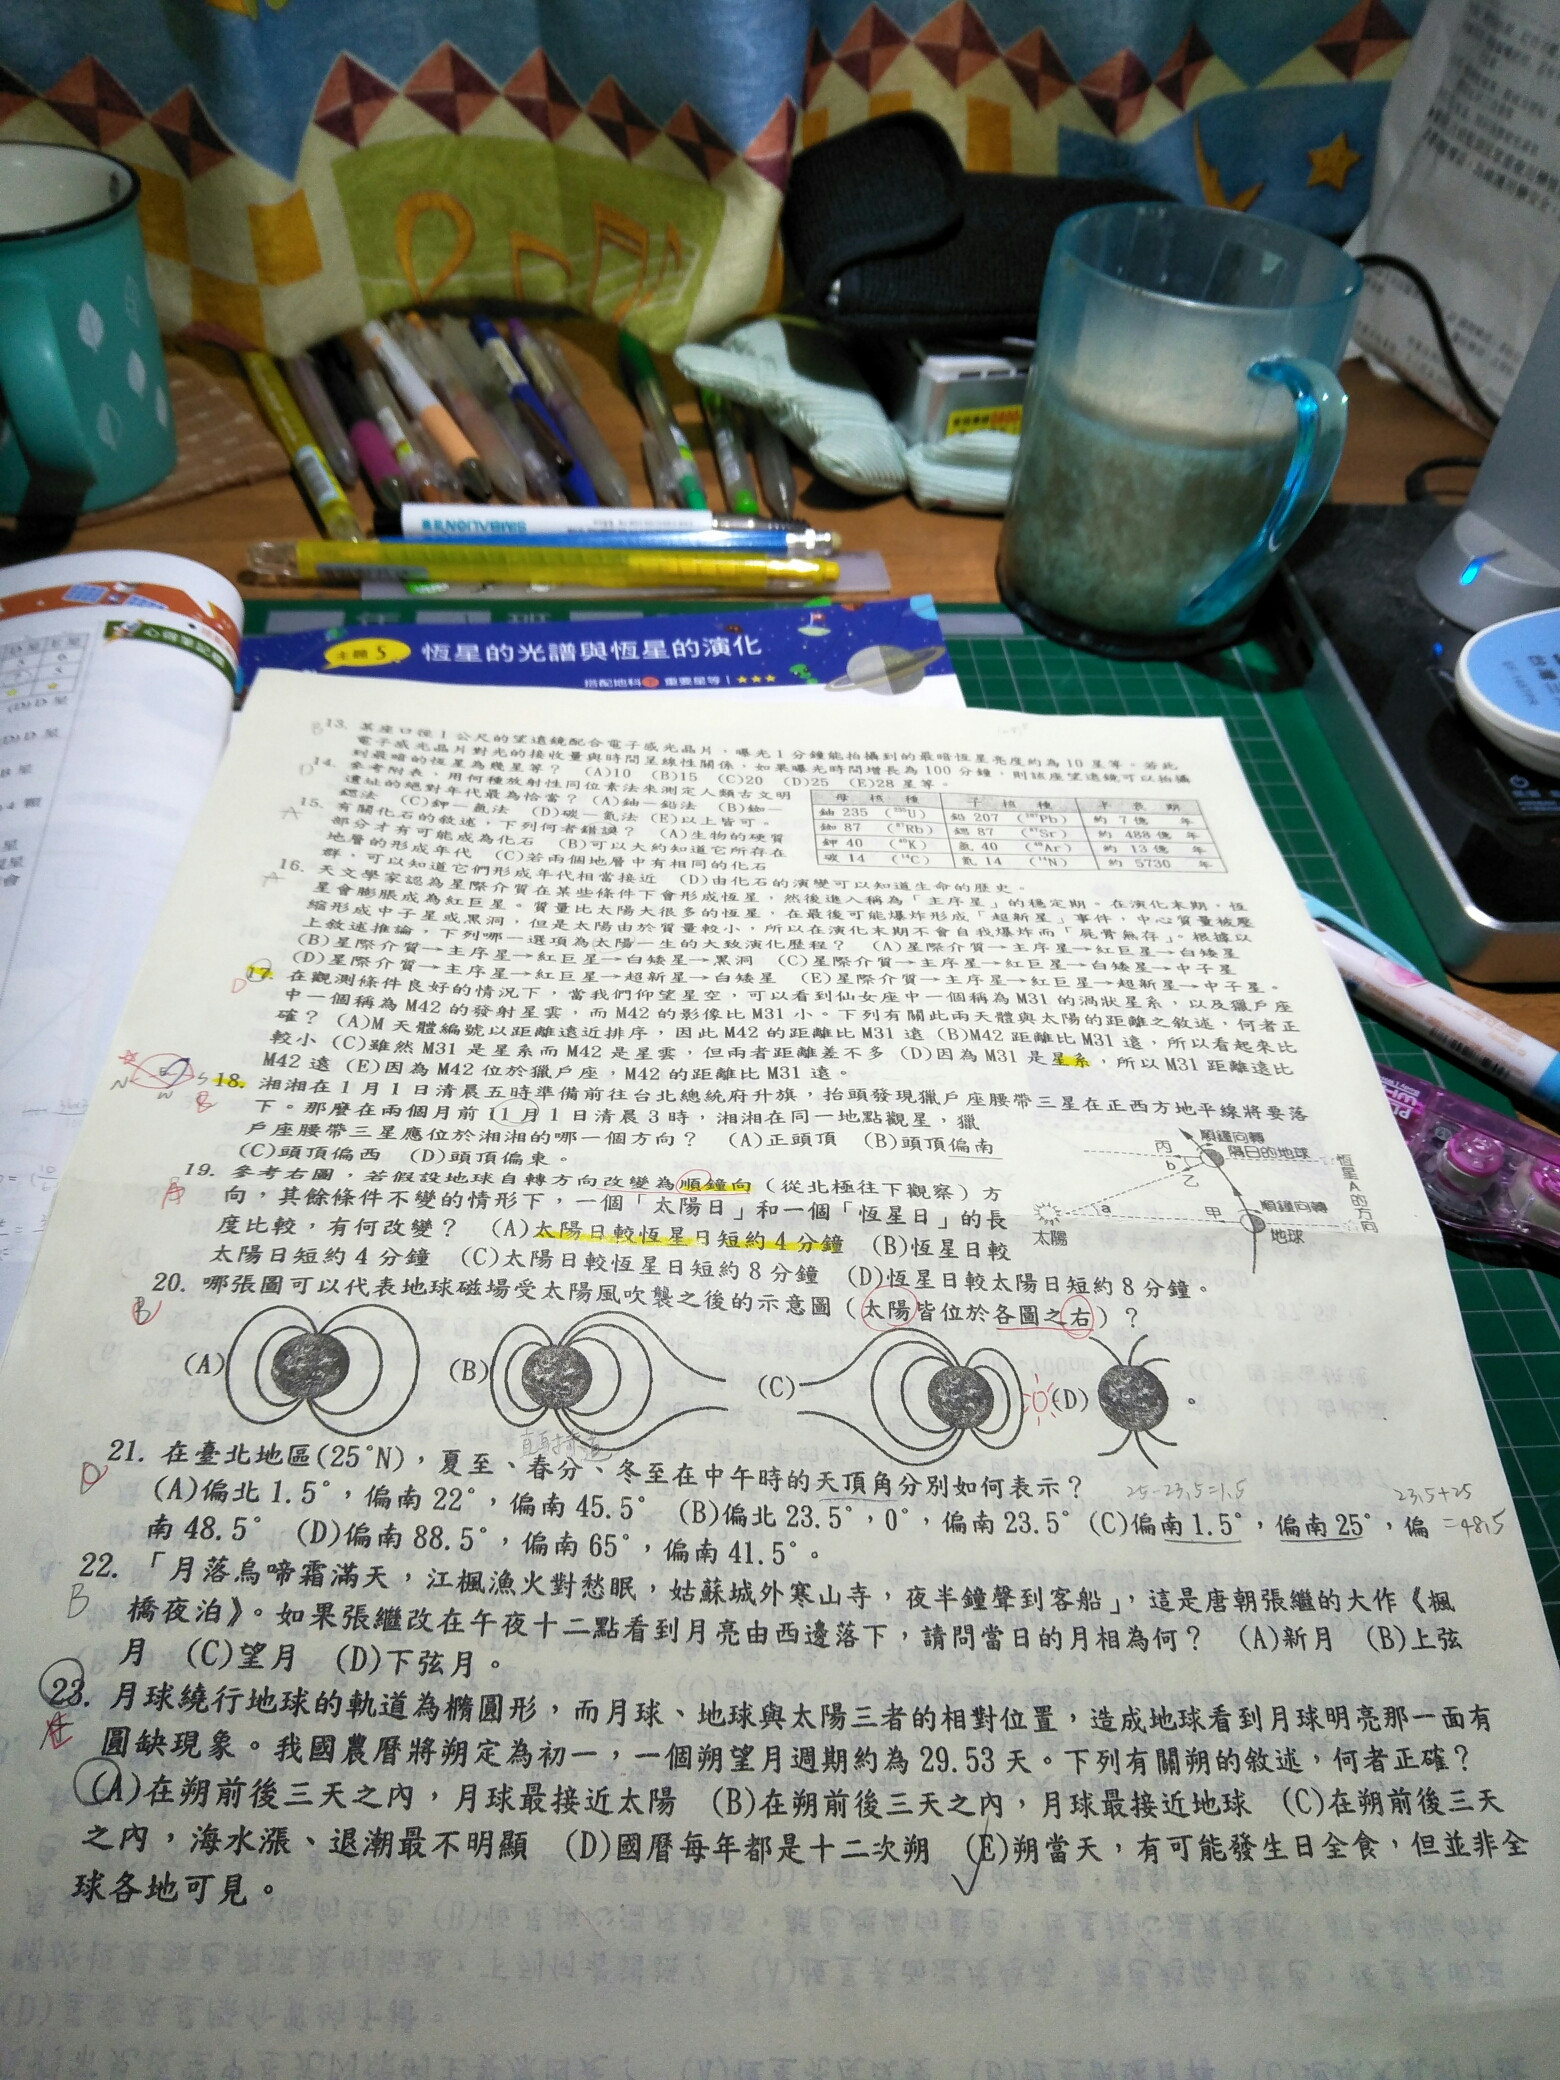 SIMBALION
年 班
主題5 恆星的光譜與恆星的演化
搭配地科 重要星等 ★★★
心得筆記欄
13. 某座口徑1公尺的望遠鏡配合電子感光晶片，曝光1分鐘能拍攝到的最暗恆星亮度約為10星等。若此
電子感光晶片對光的接收量與時間呈線性關係，如果曝光時間增長為100分鐘，則該座望遠鏡可以拍攝
到最暗的恆星為幾星等？ (A)10 (B)15 (C)20 (D)25 (E)28星等。
14. 參考附表，用何種放射性同位素法來測定人類古文明
遺址的絕對年代最為恰當？ (A)鈾－鉛法 (B)銣－
鍶法 (C)鉀－氬法 (D)碳－氮法 (E)以上皆可。
母核種 子核種 半衰期
鈾235 (²³⁵U) 鉛207 (²⁰⁷Pb) 約7億年
銣87 (⁸⁷Rb) 鍶87 (⁸⁷Sr) 約488億年
鉀40 (⁴⁰K) 氬40 (⁴⁰Ar) 約13億年
碳14 (¹⁴C) 氮14 (¹⁴N) 約5730年
15. 有關化石的敘述，下列何者錯誤？ (A)生物的硬質
部分才有可能成為化石 (B)可以大約知道它所存在
地層的形成年代 (C)若兩個地層中有相同的化石
群，可以知道它們形成年代相當接近 (D)由化石的演變可以知道生命的歷史。
16. 天文學家認為星際介質在某些條件下會形成恆星，然後進入稱為「主序星」的穩定期。在演化末期，恆
星會膨脹成為紅巨星。質量比太陽大很多的恆星，在最後可能爆炸形成「超新星」事件，中心質量被壓
縮形成中子星或黑洞，但是太陽由於質量較小，所以在演化末期不會自我爆炸而「屍骨無存」。根據以
上敘述推論，下列哪一選項為太陽一生的大致演化歷程？ (A)星際介質→主序星→紅巨星→白矮星
(B)星際介質→主序星→紅巨星→白矮星→黑洞 (C)星際介質→主序星→紅巨星→白矮星→中子星
(D)星際介質→主序星→紅巨星→超新星→白矮星 (E)星際介質→主序星→紅巨星→超新星→中子星。
D 17. 在觀測條件良好的情況下，當我們仰望星空，可以看到仙女座中一個稱為M31的渦狀星系，以及獵戶座
中一個稱為M42的發射星雲，而M42的影像比M31小。下列有關此兩天體與太陽的距離之敘述，何者正
確？ (A)M天體編號以距離遠近排序，因此M42的距離比M31遠 (B)M42距離比M31遠，所以看起來比
較小 (C)雖然M31是星系而M42是星雲，但兩者距離差不多 (D)因為M31是星系，所以M31距離遠比
M42遠 (E)因為M42位於獵戶座，M42的距離比M31遠。
N S W
B 18. 湘湘在1月1日清晨五時準備前往台北總統府升旗，抬頭發現獵戶座腰帶三星在正西方地平線將要落
下。那麼在兩個月前11月1日清晨3時，湘湘在同一地點觀星，獵
戶座腰帶三星應位於湘湘的哪一個方向？ (A)正頭頂 (B)頭頂偏南
(C)頭頂偏西 (D)頭頂偏東。
A 19. 參考右圖，若假設地球自轉方向改變為順鐘向（從北極往下觀察）方
向，其餘條件不變的情形下，一個「太陽日」和一個「恆星日」的長
度比較，有何改變？ (A)太陽日較恆星日短約4分鐘 (B)恆星日較
太陽日短約4分鐘 (C)太陽日較恆星日短約8分鐘 (D)恆星日較太陽日短約8分鐘。
順鐘向轉
隔日的地球
丙
b
乙
恆星A的方向
a
甲
順鐘向轉
地球
太陽
B 20. 哪張圖可以代表地球磁場受太陽風吹襲之後的示意圖（太陽皆位於各圖之右）？
(A) (B) (C) (D) 。
21. 在臺北地區(25°N)，夏至、春分、冬至在中午時的天頂角分別如何表示？
25-23.5=1.5
23.5+25
=48.5
(A)偏北1.5°，偏南22°，偏南45.5° (B)偏北23.5°，0°，偏南23.5° (C)偏南1.5°，偏南25°，偏
南48.5° (D)偏南88.5°，偏南65°，偏南41.5°。
B 22. 「月落烏啼霜滿天，江楓漁火對愁眠，姑蘇城外寒山寺，夜半鐘聲到客船」，這是唐朝張繼的大作《楓
橋夜泊》。如果張繼改在午夜十二點看到月亮由西邊落下，請問當日的月相為何？ (A)新月 (B)上弦
月 (C)望月 (D)下弦月。
23. 月球繞行地球的軌道為橢圓形，而月球、地球與太陽三者的相對位置，造成地球看到月球明亮那一面有
圓缺現象。我國農曆將朔定為初一，一個朔望月週期約為29.53天。下列有關朔的敘述，何者正確？
(A)在朔前後三天之內，月球最接近太陽 (B)在朔前後三天之內，月球最接近地球 (C)在朔前後三天
之內，海水漲、退潮最不明顯 (D)國曆每年都是十二次朔 (E)朔當天，有可能發生日全食，但並非全
球各地可見。